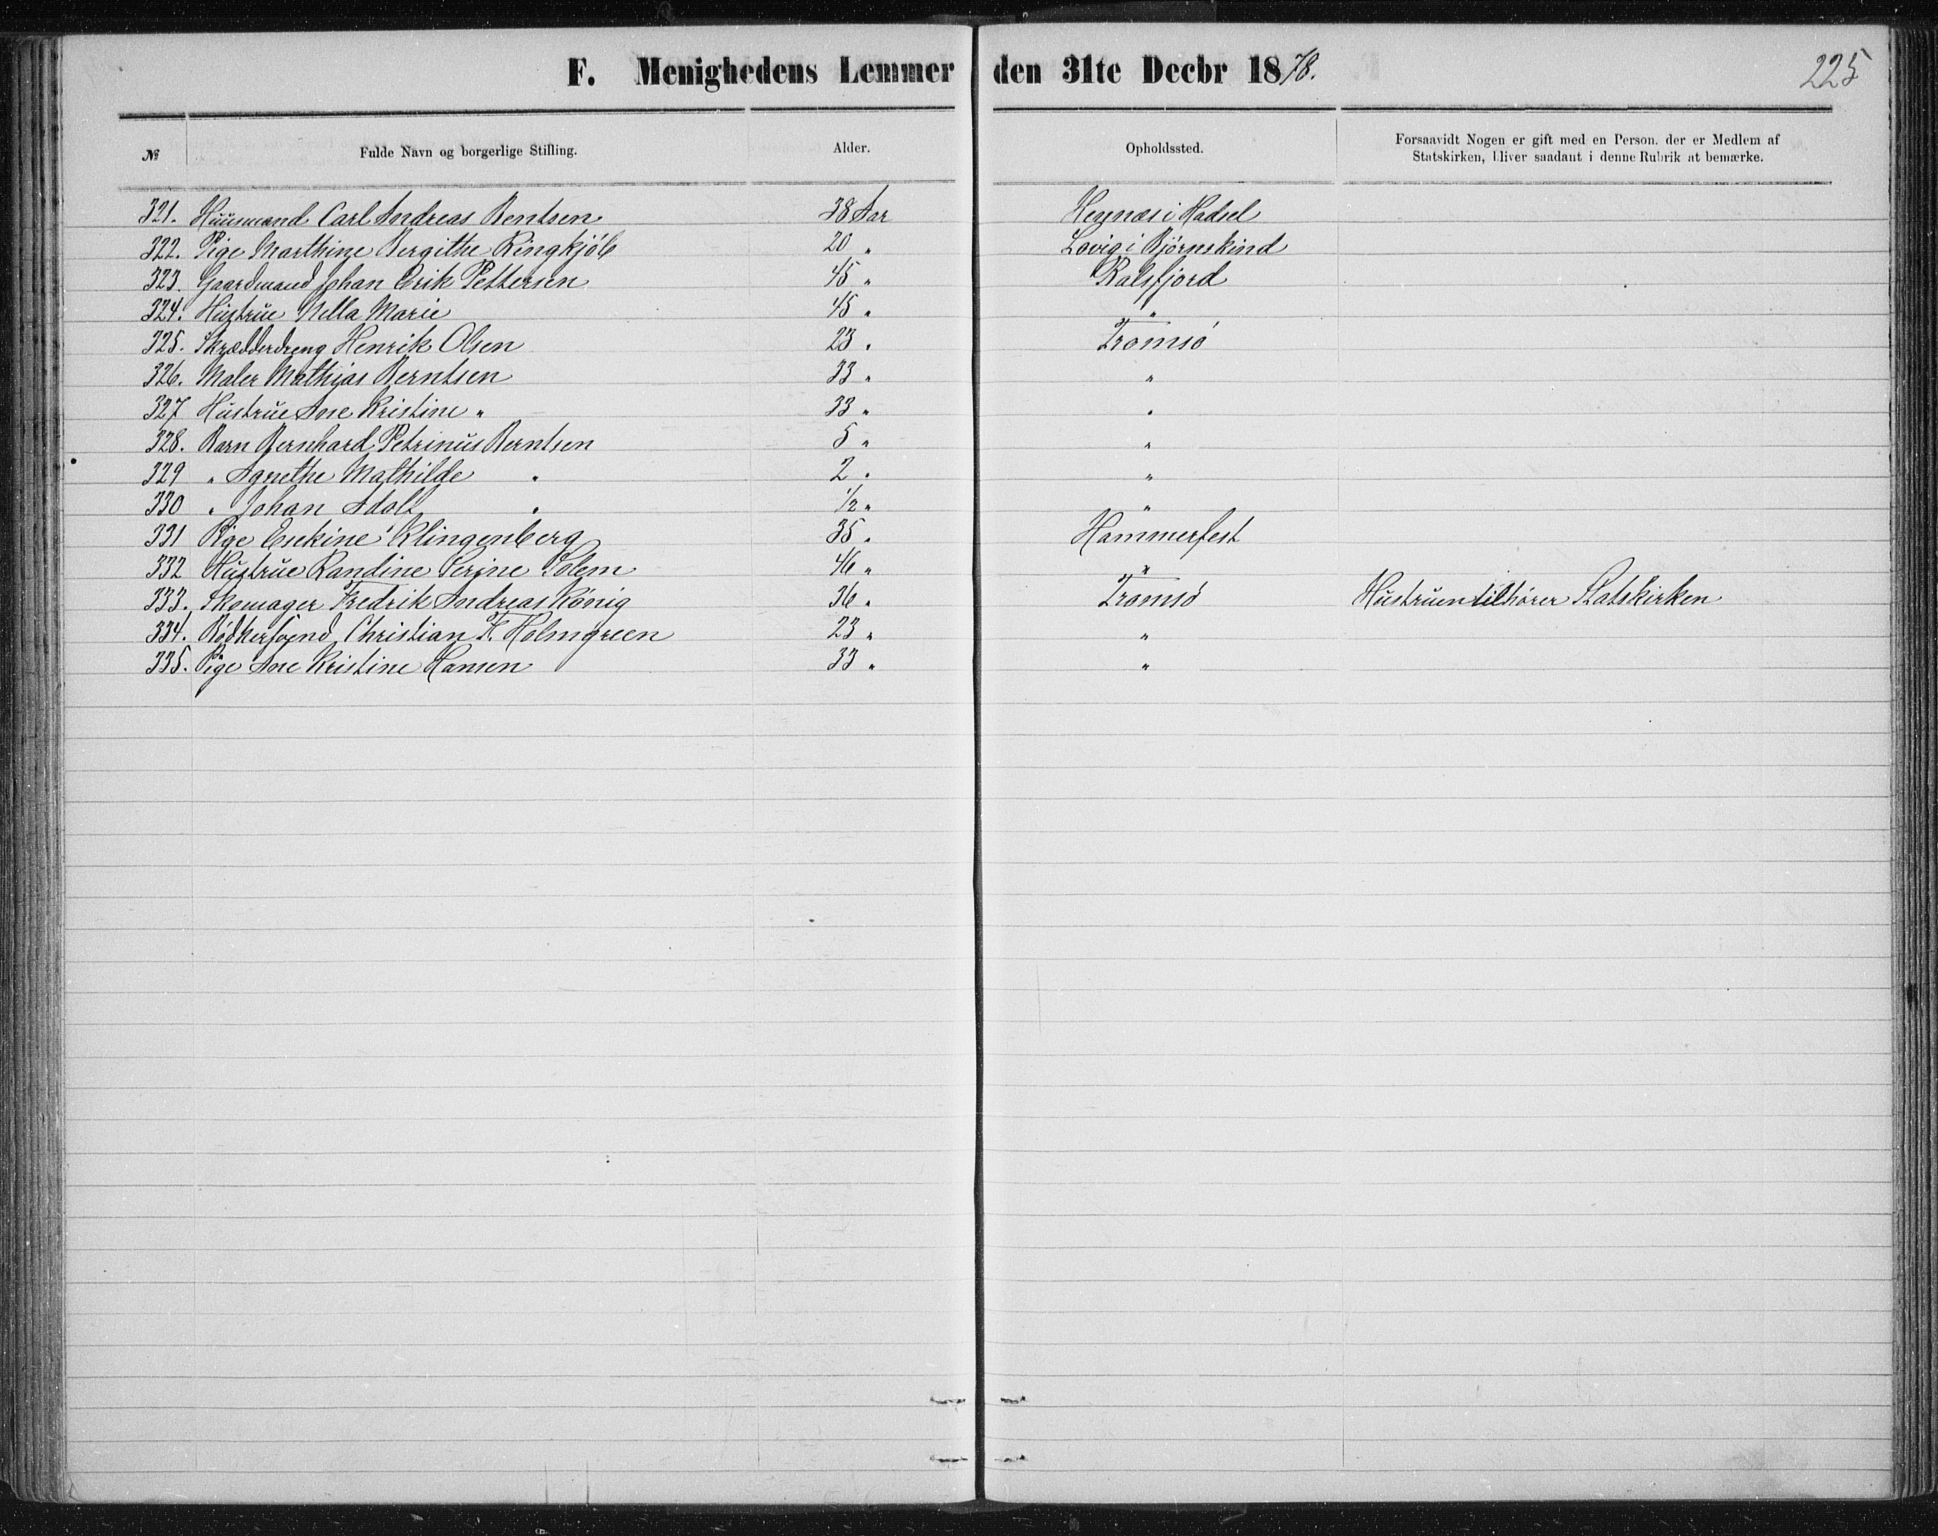 F. Menighedens Lemmer den 31te Decbr 1878.
225
№ Fulde Navn og borgerlige Stilling. Alder. Opholdssted. Forsaavidt Nogen er gift med en Person, der er Medlem af
Statskirken, bliver saadant i denne Rubrik at bemærke.
321. Huusmand Carl Andreas Bentsen 38 Aar Hegnæs i Hadsel
322. Pige Marthine Bergithe Ringkjöb 20 " Lovig i Björnskind
323. Gaardmand Johan Erik Pettersen 45 " Balsfjord
324. Hustrue Nella Marie 45 " "
325. Skrædderdreng Henrik Olsen 23 " Tromsö
326. Maler Mathias Berntsen 33 " "
327 Hustrue Ane Kristine " 33 " "
328. Barn Bernhard Petrinus Berntsen 5 " "
329 " Agnethe Mathilde " 2 " "
330 " Johan Adolf " 1/2 " "
331 Pige Klingenberg 35 " Hammerfest
332 Hustrue Randine Serine Solem 46 " "
333. Skomager Fredrik Andreas König 36 " Tromsö Hustruen tilhörer Statskirken
334. Bödkersvend Christian F. Holmgreen 23 " "
335. Pige Ane Kristine Hansen 33 " "